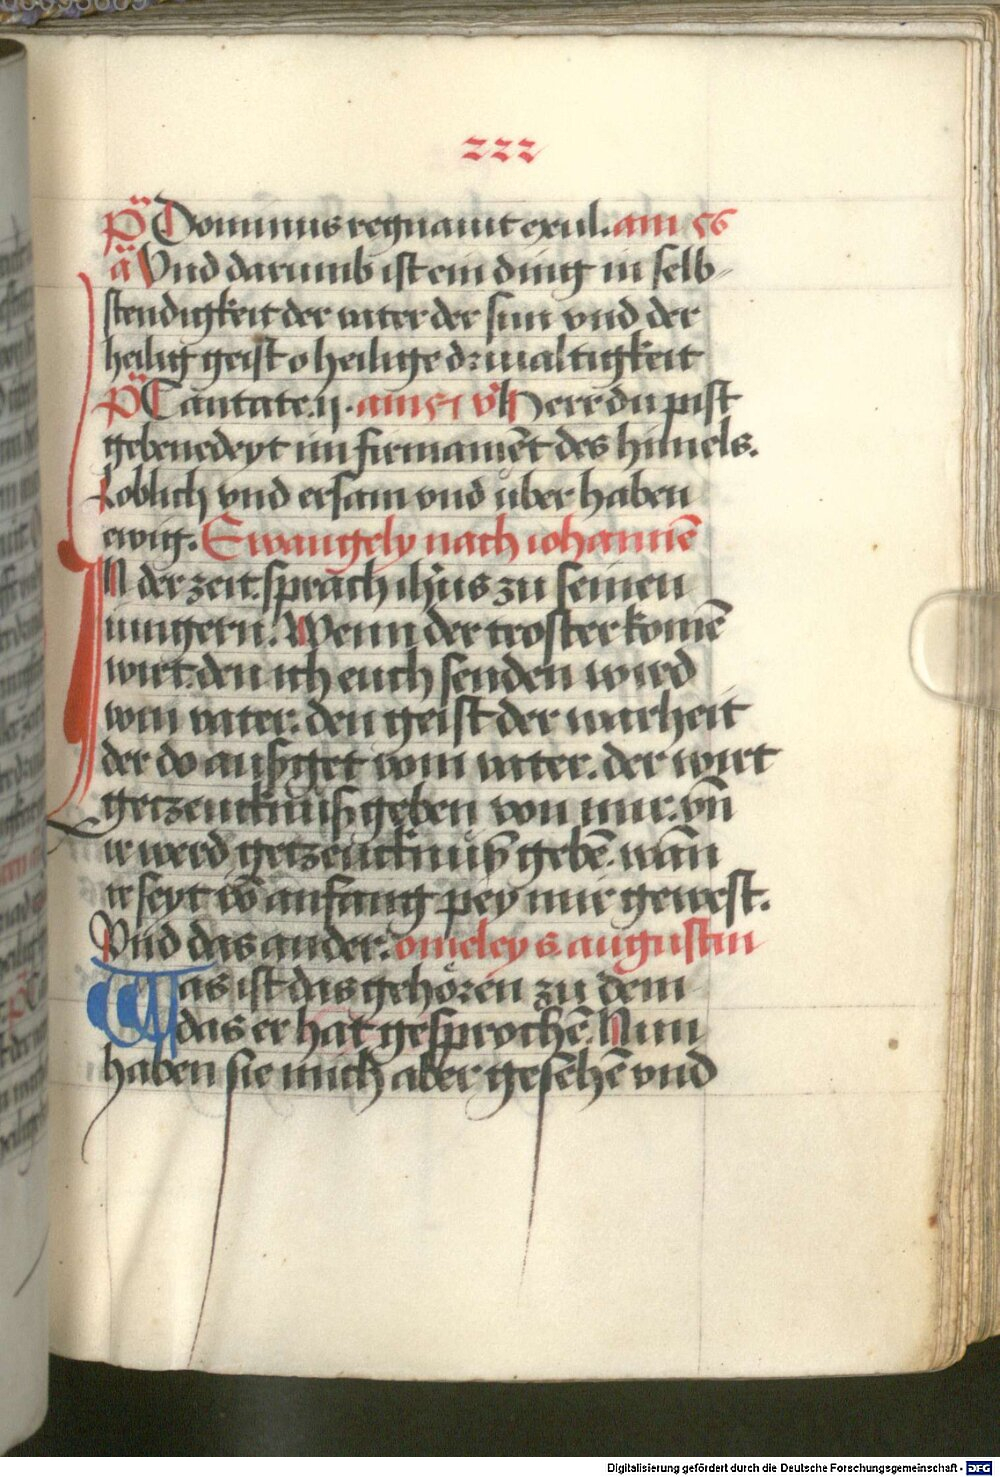 222
ps Dominus regnauit exul. am 56
a Vnd darumb ist ein ding in selb-
stendigkeit der vater der sun vnd der
heilig geist o heilige driualtigkeit
ps Cantate. ij. am 57 v Herr du pist
gebenedeyt im firmamēt des himels.
Loblich vnd ersam vnd uber haben
ewig. Ewangely nach iohannē
IN der zeit. sprach ihūs zu seinen
iungern. Wenn der troster komē
wirt. den ich euch senden wird
vom vater. den geist der warheit
der do außget vom vater. der wirt
getzeucknuß geben von mir. vn̄
ir werd getzeucknuß gebē. wan̄
ir seyt vō anfang pey mir gewest.
Vnd das ander. omeley s. augustin
Was ist das gehören zu dem
das er hat gesprochē. Nun
haben sie mich aber gesehē vnd
Digitalisierung gefördert durch die Deutsche Forschungsgemeinschaft - DFG